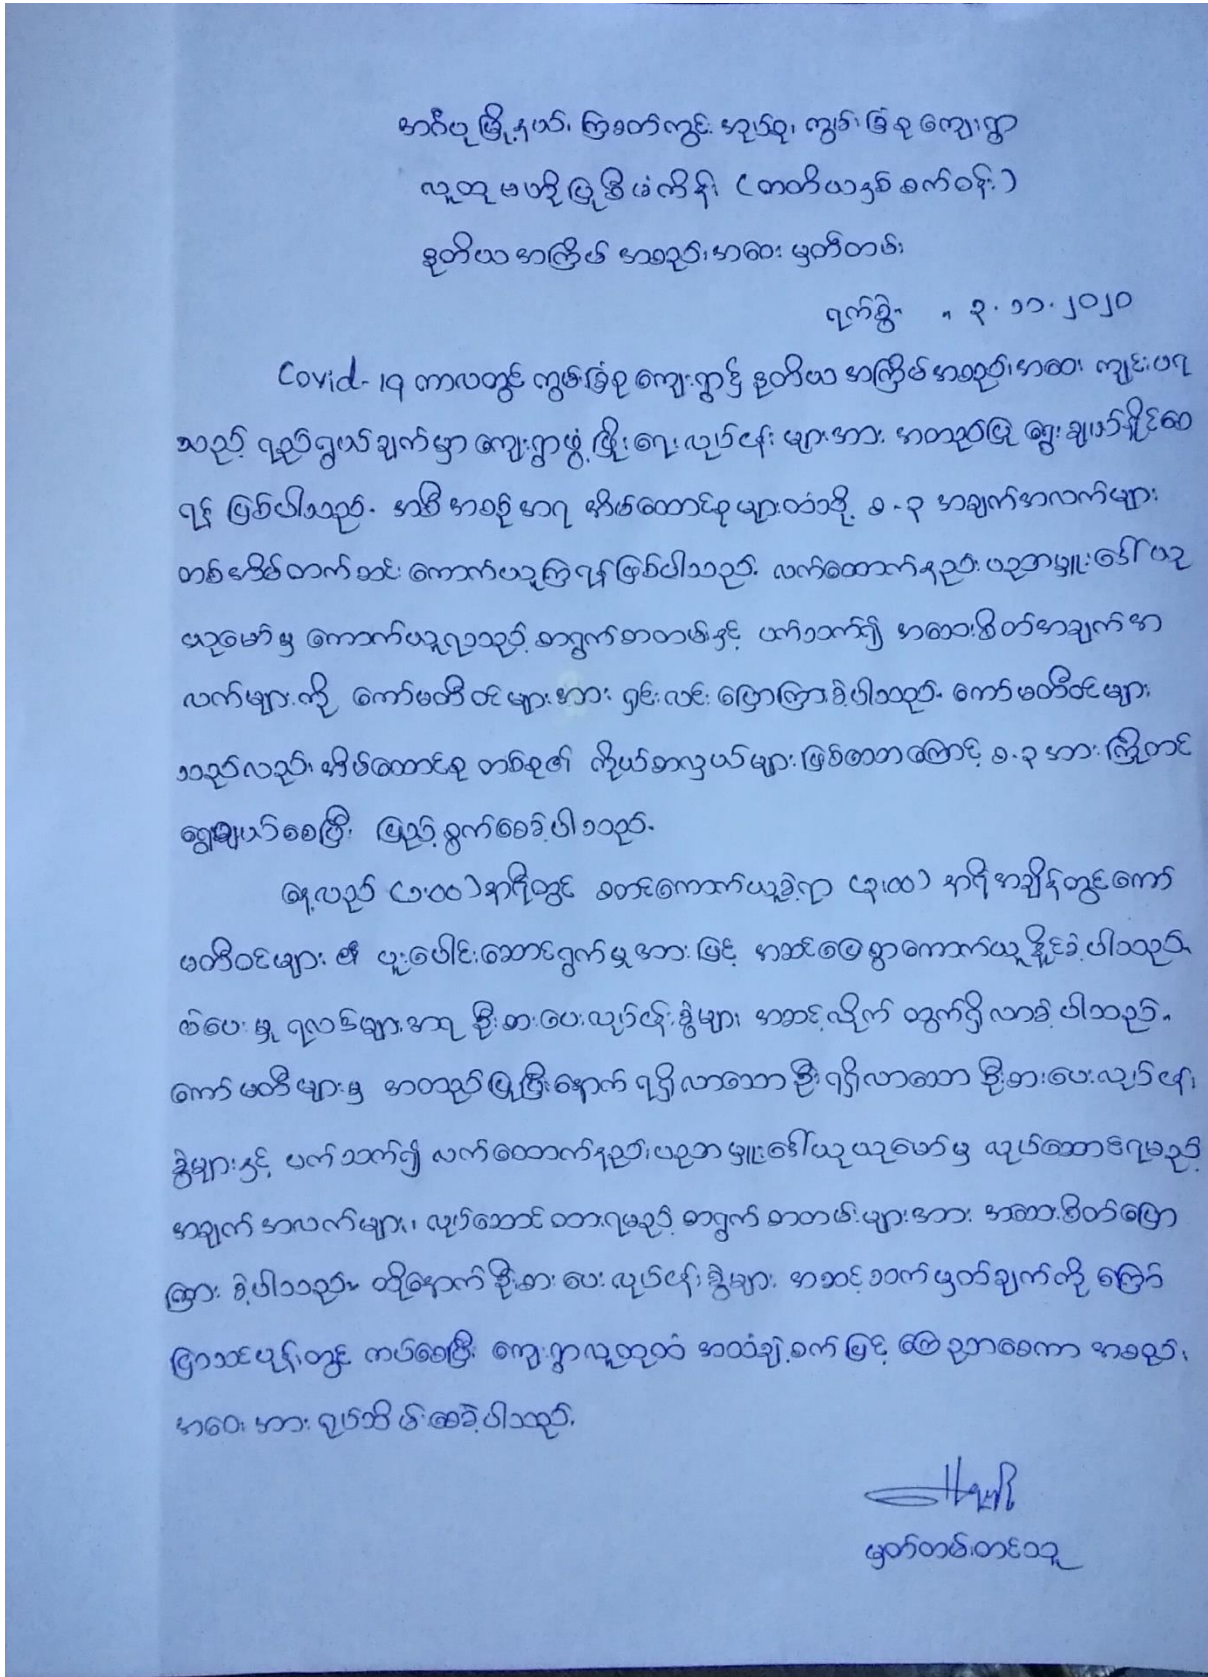 အင်္ဂပူမြို့နယ်၊ ကြခတ်ကွင်းအုပ်စု၊ ကွမ်းခြံစုကျေးရွာ
လူထုဗဟိုပြုစီမံကိန်း (တတိယနှစ်စက်ဝန်း)
ဒုတိယအကြိမ် အစည်းအဝေး မှတ်တမ်း
ရက်စွဲ၊ ၊ ၃.၁၁.၂၀၂၀
Covid-19 ကာလတွင် ကွမ်းခြံစုကျေးရွာ၌ ဒုတိယအကြိမ်အစည်းအဝေး ကျင်းပရ
သည့် ရည်ရွယ်ချက်မှာ ကျေးရွာဖွံ့ဖြိုးရေးလုပ်ငန်းများအား အတည်ပြု ရွေးချယ်နိုင်စေ
ရန် ဖြစ်ပါသည်။ အစီအစဉ်အရ အိမ်ထောင်စုများထံသို့ စ-၃ အချက်အလက်များ
တစ်အိမ်တက်ဆင်း ကောက်ယူကြရန်ဖြစ်ပါသည်။ လက်ထောက်နည်းပညာမှူးဒေါ်ယု
ယုမော်မှ ကောက်ယူရသည့် စာရွက်စာတမ်းနှင့် ပက်သက်၍ အသေးစိတ်အချက်အ
လက်များကို ကော်မတီဝင်များအား ရှင်းလင်းပြောကြားခဲ့ပါသည်။ ကော်မတီဝင်များ
သည်လည်း အိမ်ထောင်စု တစ်စု၏ ကိုယ်စားလှယ်များဖြစ်သောကြောင့် စ-၃ အား ကြိုတင်
ရွေးချယ်စေပြီး ဖြည့်စွက်စေခဲ့ပါသည်။
နေ့လည် (၁:၀၀) နာရီတွင် စတင်ကောက်ယူခဲ့ရာ (၃:၀၀) နာရီအချိန်တွင်ကော်
မတီဝင်များ ၏ ပူးပေါင်းဆောင်ရွက်မှုအားဖြင့် အဆင်ပြေစွာကောက်ယူနိုင်ခဲ့ပါသည်။
မဲပေးမှု ရလဒ်များအရ ဦးစားပေးလုပ်ငန်းခွဲများ အဆင့်လိုက် ထွက်ရှိလာခဲ့ပါသည်။
ကော်မတီများမှ အတည်ပြုပြီးနောက် ရရှိလာသော ဦးရရှိလာသော ဦးစားပေးလုပ်ငန်း
ခွဲများနှင့် ပက်သက်၍ လက်ထောက်နည်းပညာမှူးဒေါ်ယုယုမော်မှ လုပ်ဆောင်ရမည့်
အချက်အလက်များ၊ လုပ်ဆောင်ထားရမည့် စာရွက်စာတမ်းများအား အသေးစိတ်ပြော
ကြားခဲ့ပါသည်။ ထို့နောက် ဦးစားပေးလုပ်ငန်းခွဲများ အဆင့်သက်မှတ်ချက်ကို ကြော်
ငြာသင်ပုန်းတွင် ကပ်စေပြီး ကျေးရွာလူထုထံ အသံချဲ့စက်ဖြင့် ကြေညာစေကာ အစည်း
အဝေးအား ရုပ်သိမ်းစေခဲ့ပါသည်။
မှတ်တမ်းတင်သူ